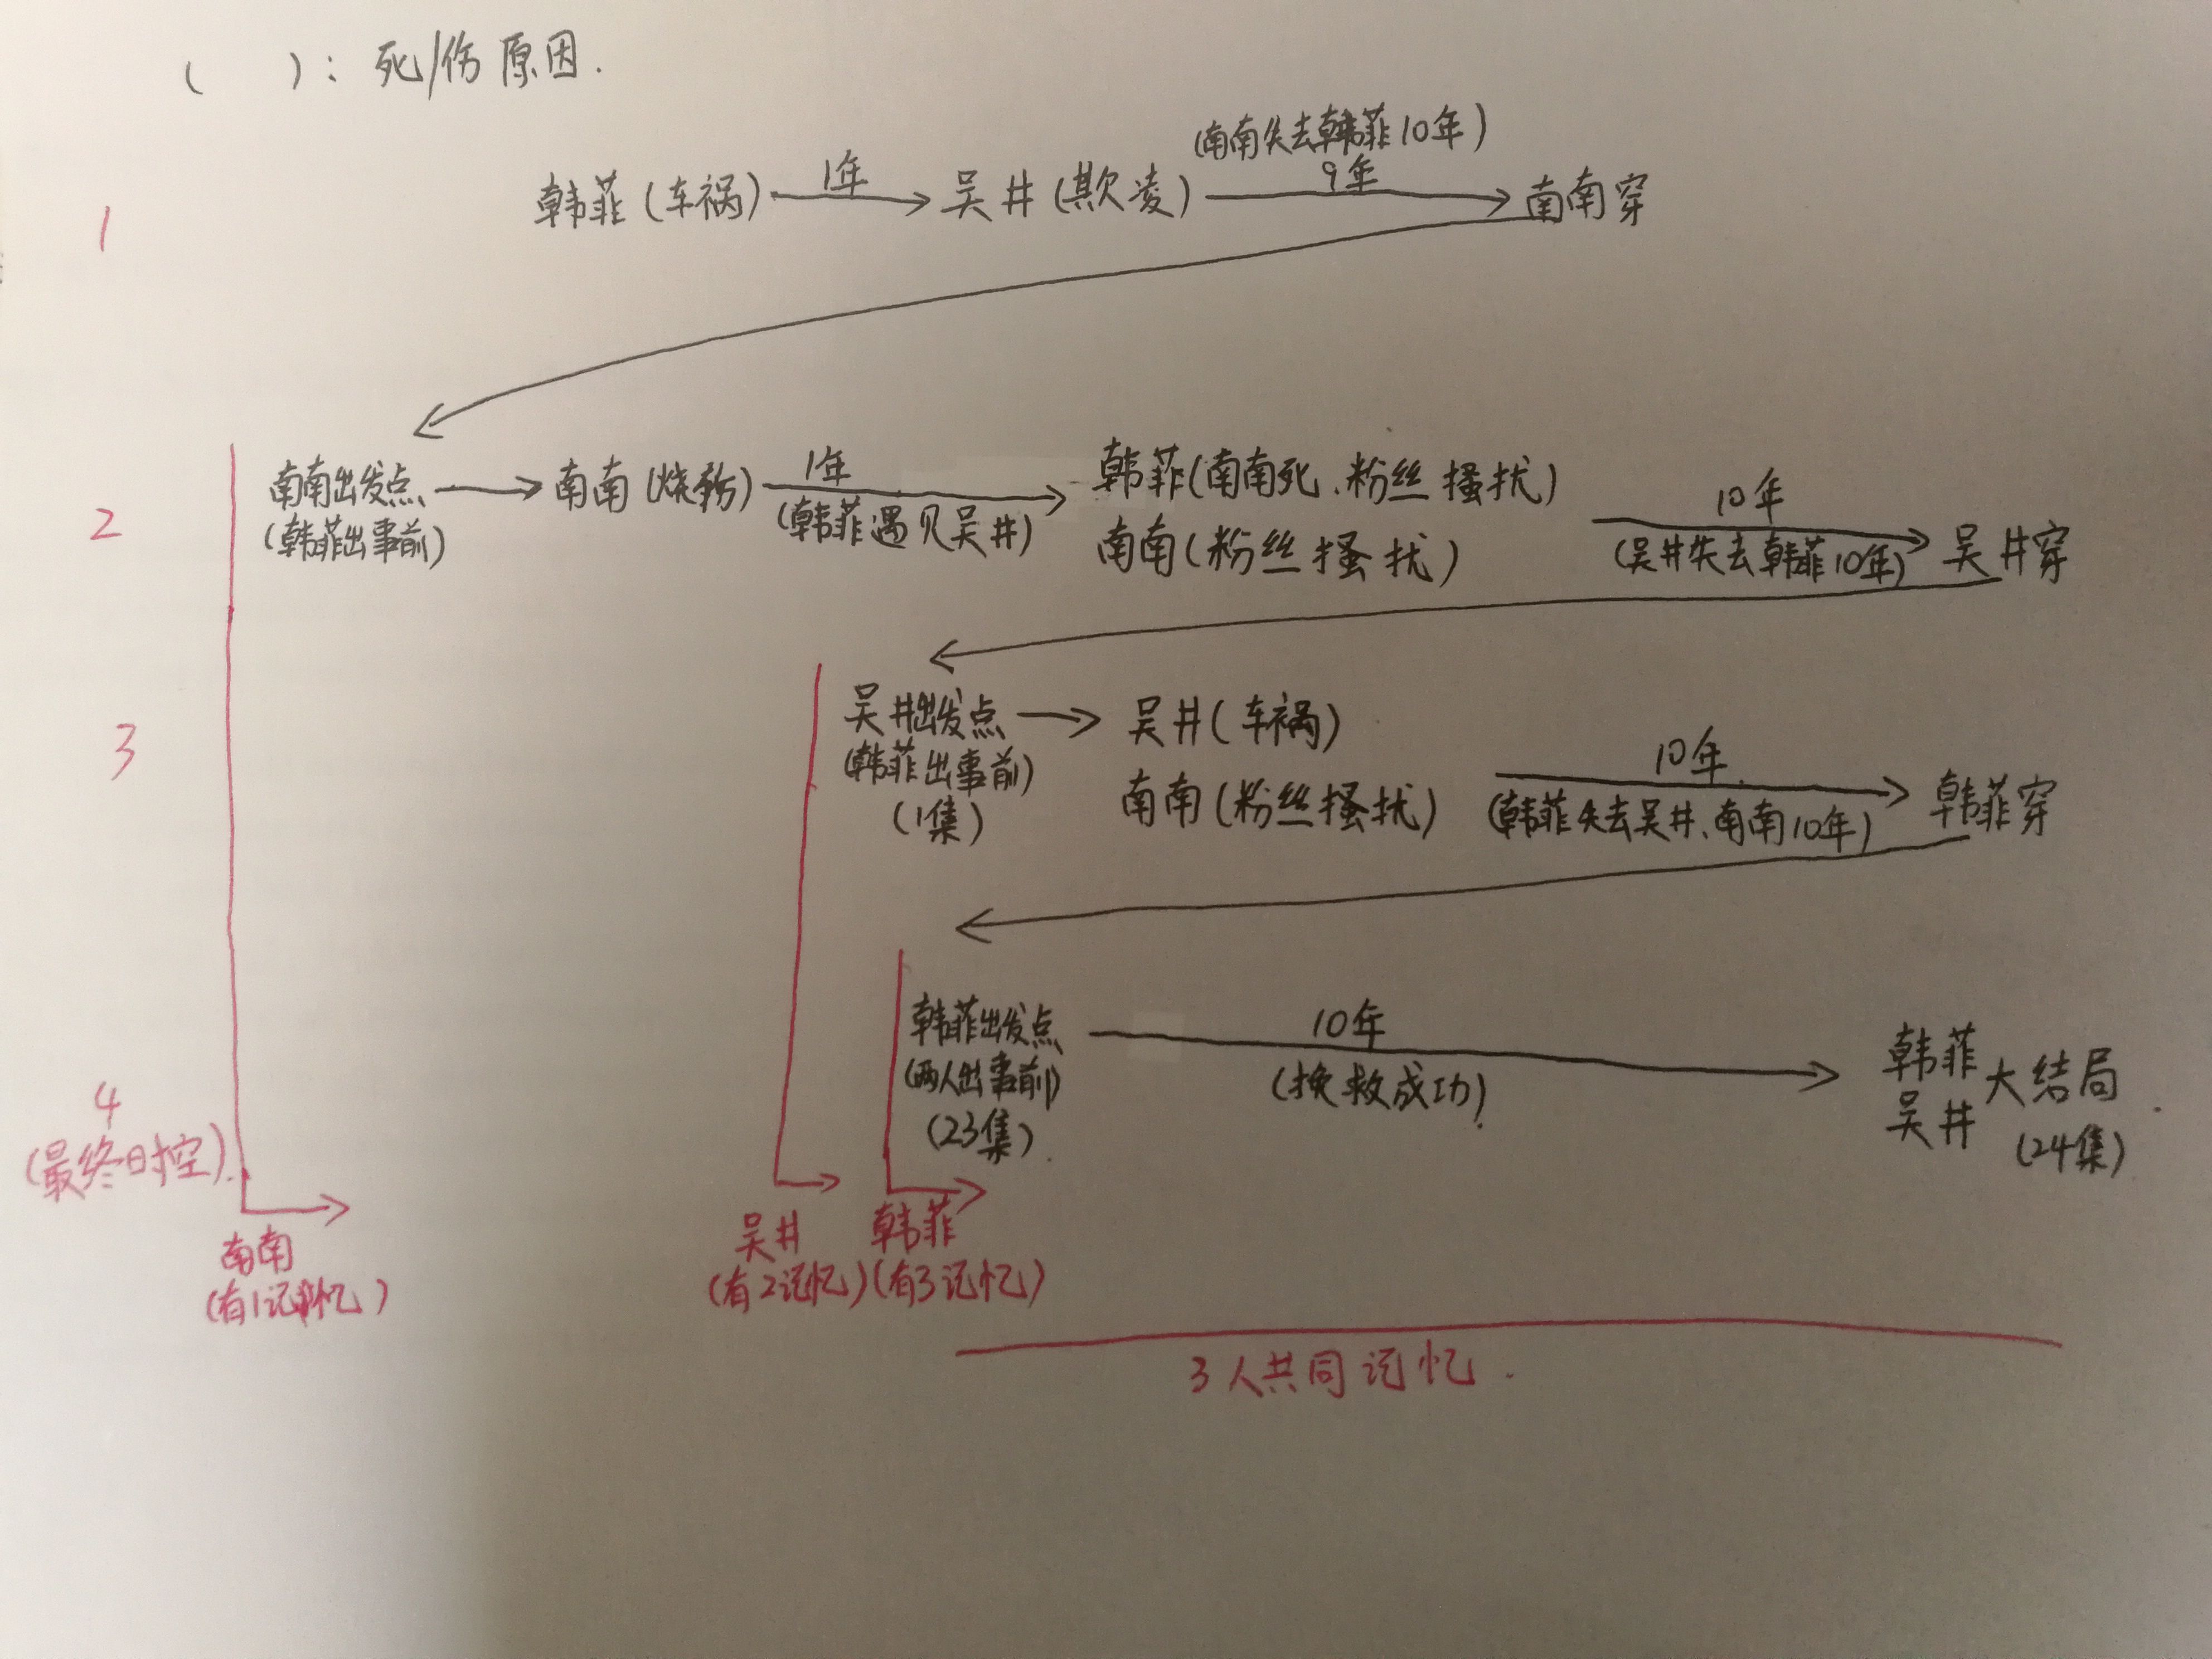 ( ):死/伤原因.
(南南失去韩菲10年)
1年
9年
1 韩菲(车祸) 吴井(欺凌) 南南穿
1年
10年
2 南南出发点 南南(烧 ) 韩菲(南南死、粉丝搔扰) 吴井穿
(韩菲出事前) (韩菲遇见吴井) 南南(粉丝搔扰) (吴井失去韩菲10年)
3 吴井出发点 吴井(车祸)
10年
(韩菲出事前) 南南(粉丝搔扰) (韩菲失去吴井、南南10年) 韩菲穿
(1集)
10年
韩菲出发点 韩菲
(两人出事前) (挽救成功) 吴井 大结局
(23集) (24集)
4
(最终时空)
南南 吴井 韩菲
(有1记忆) (有2记忆) (有3记忆)
3人共同记忆.